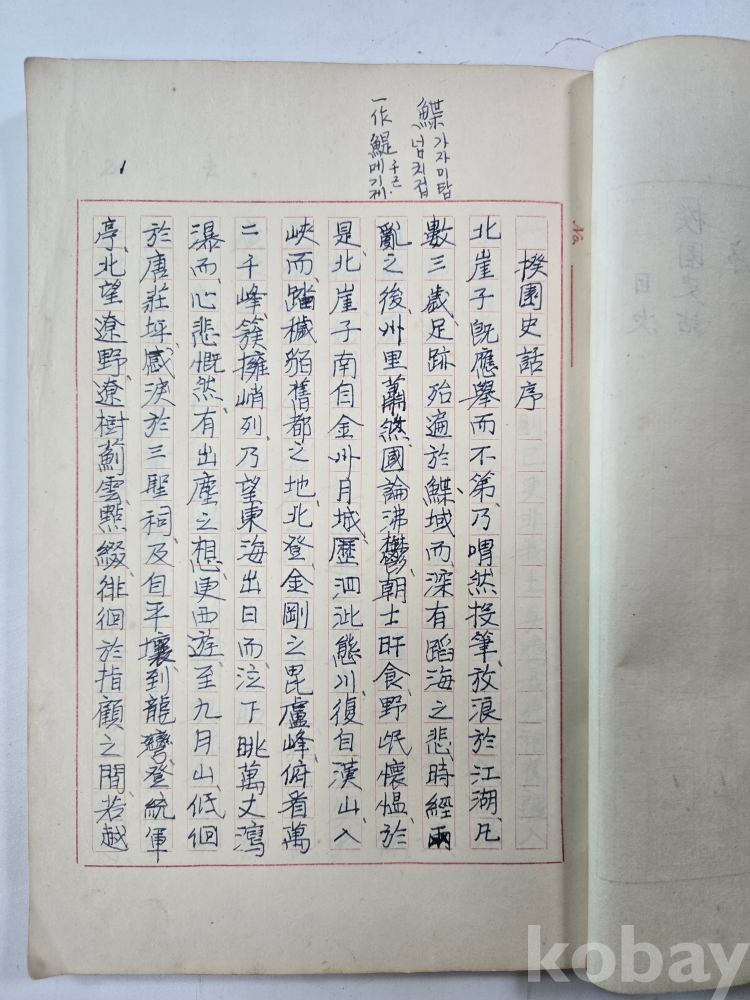 鰈 가자미탑
넙치접
一作鯷 메기제
1
No.
揆園史話序
北崖子旣應舉而不第、乃喟然投筆、放浪於江湖、凡
數三歲、足跡殆遍於鰈域、而深有蹈海之悲、時經兩
亂之後、州里蕭然、國論沸鬱、朝士旰食、野氓懷慍、於
是、北崖子南自金州月城、歷泗沘熊川、復自漢山、入
峽而踏穢貊舊都之地、北登金剛之毘盧峰、俯看萬
二千峰、簇擁峭列、乃望東海出日而泣下、眺萬丈瀉
瀑而、心悲慨然、有出塵之想、更西遊、至九月山、低徊
於唐莊坪、感淚於三聖祠、及自平壤到龍灣、登統軍
亭、北望遼野、遼樹薊雲、點綴徘徊於指顧之間、若越